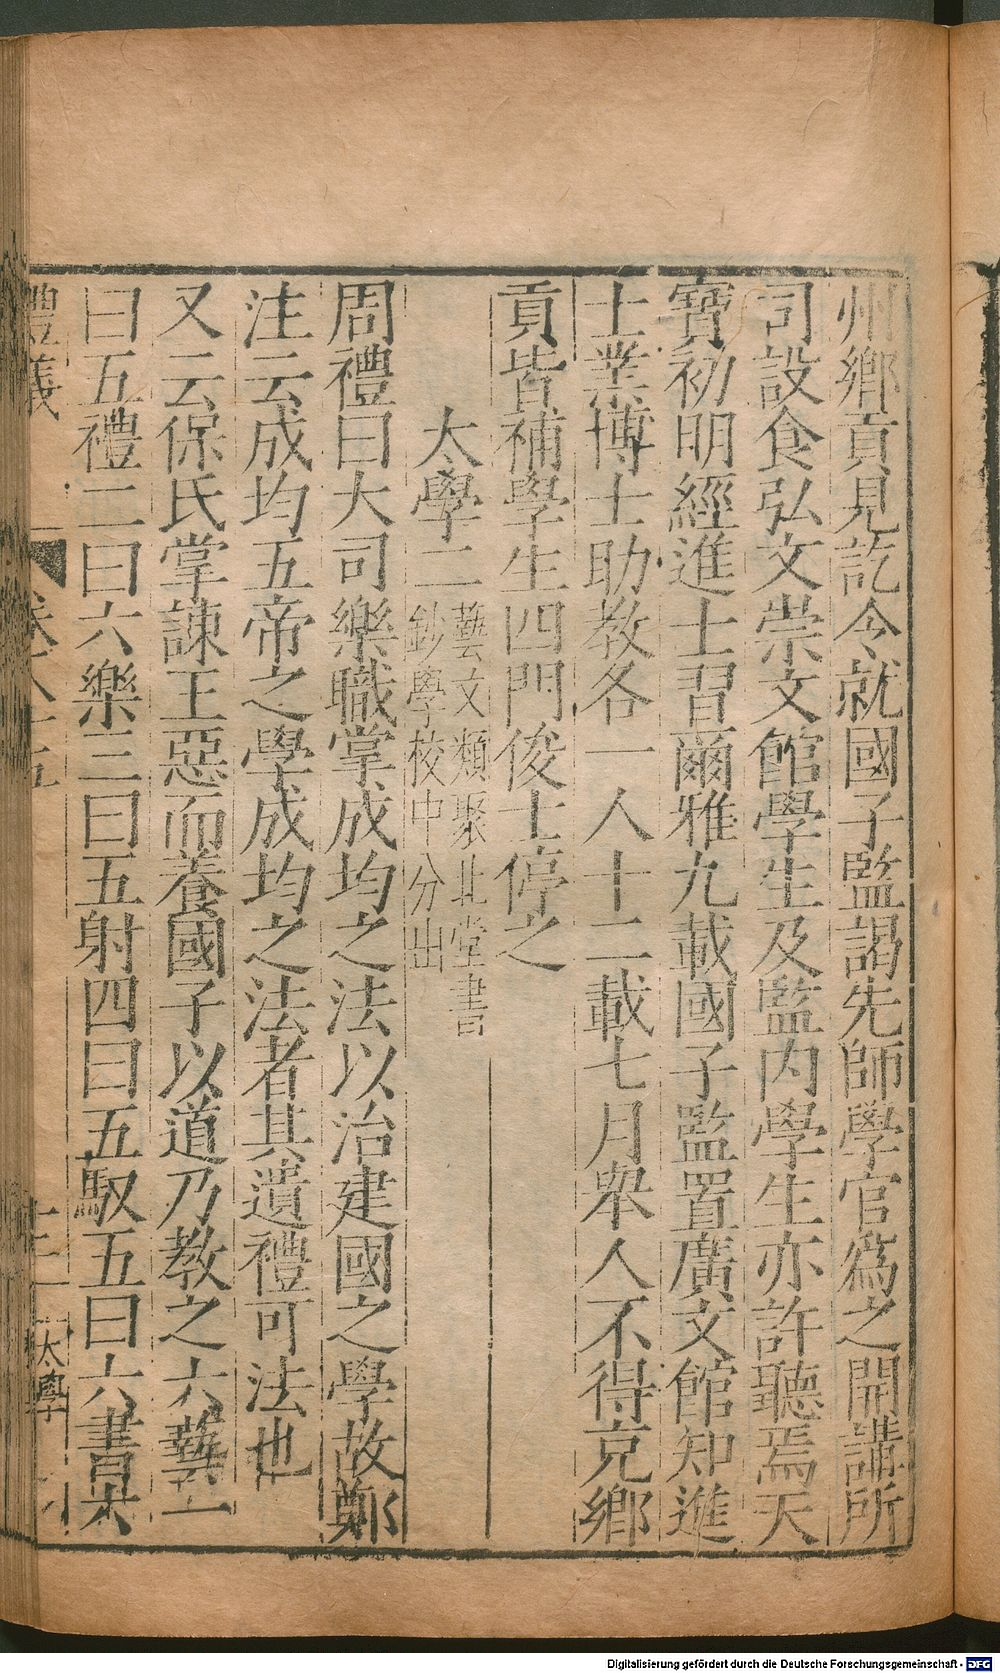 州鄉貢見訖令就國子監謁先師學官爲之開講所
司設食弘文崇文館學生及監内學生亦許聽焉天
寶初明經進士習爾雅九載國子監置廣文館知進
士業博士助教各一人十二載七月舉人不得充鄉
貢皆補學生四門俊士停之
太學二
藝文類聚北堂書
鈔學校中分出
周禮曰大司樂職掌成均之法以治建國之學故鄭
注云成均五帝之學成均之法者其遺禮可法也
又云保氏掌諫王惡而養國子以道乃教之六藝一
曰五禮二曰六樂三曰五射四曰五馭五曰六書六
禮義
太學
Digitalisierung gefördert durch die Deutsche Forschungsgemeinschaft - DFG